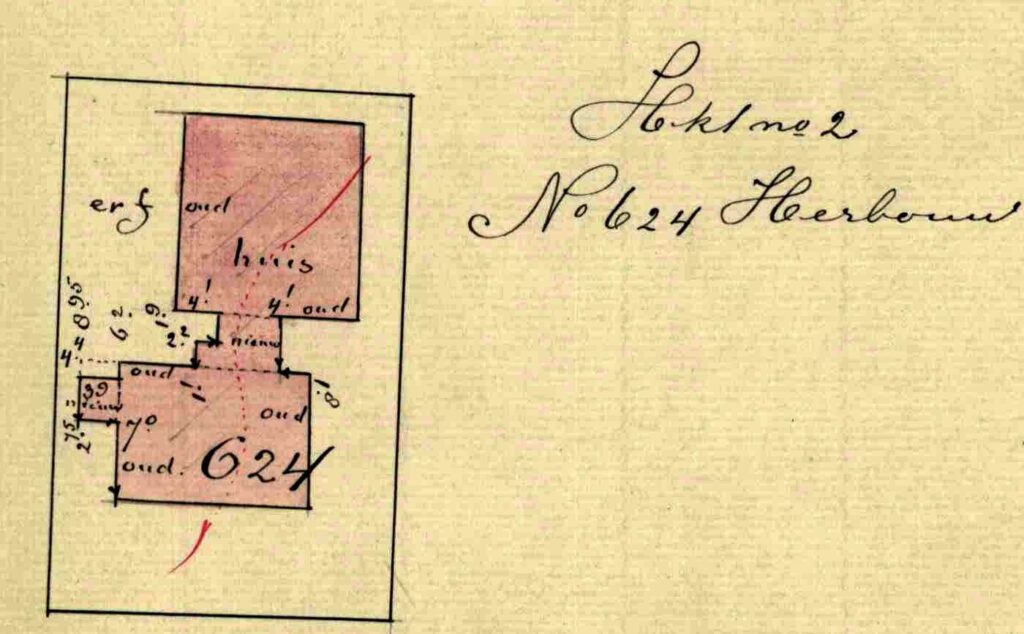 Hkt no 2
No 624 Herbouw
erf
oud
huis
4.1
4.1
oud
nieuw
1.9
6.2
8.95
2.2
4.4
oud
1.1
1.8
39
nieuw
oud
7.0
2.75
oud.
624